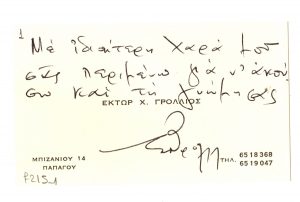 1
Μέ ἰδιαίτερη χαρά μου
σᾶς περιμένω γιά ν' ἀκού-
σω καί τή γνώμη σας
ΕΚΤΩΡ Χ. ΓΡΟΛΛΙΟΣ
ΜΠΙΖΑΝΙΟΥ 14
ΠΑΠΑΓΟΥ
ΤΗΛ. 6518368
6519047